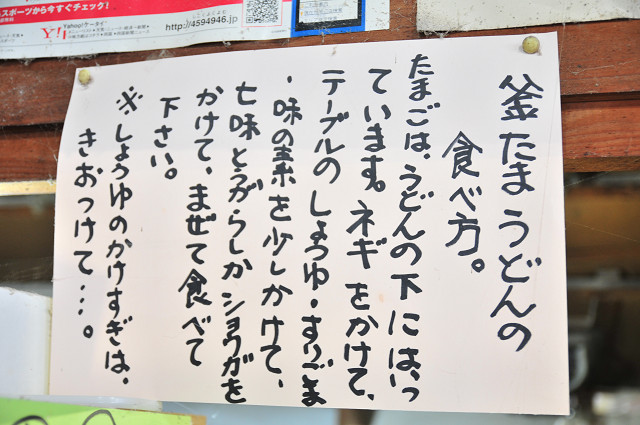 スポーツから今すぐチェック!
Yahoo!ケータイ
http://4594946.jp
釜たまうどんの
食べ方。
たまごは、うどんの下にはいっ
ています。ネギをかけて、
テーブルのしょうゆ・すりごま
・味の素を少しかけて、
七味とうがらしかショウガを
かけて、まぜて食べて
下さい。
※しょうゆのかけすぎは、
きおつけて…。